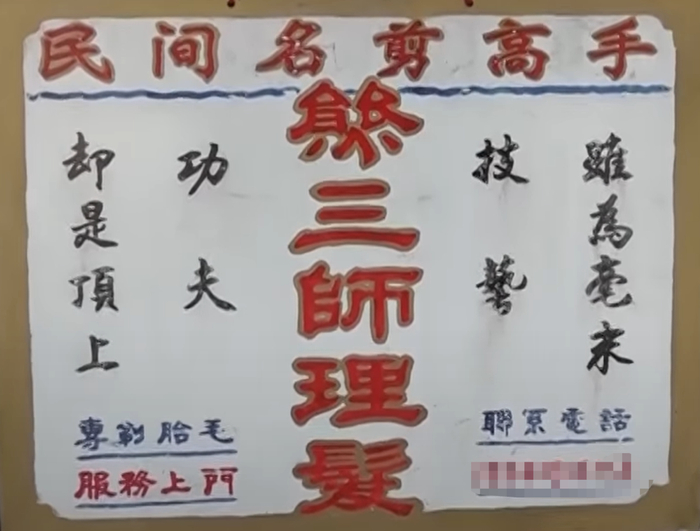 民间名剪高手
雖為毫末
技藝
三師理髮
功夫
却是頂上
聯系電話
專剃胎毛
服務上門